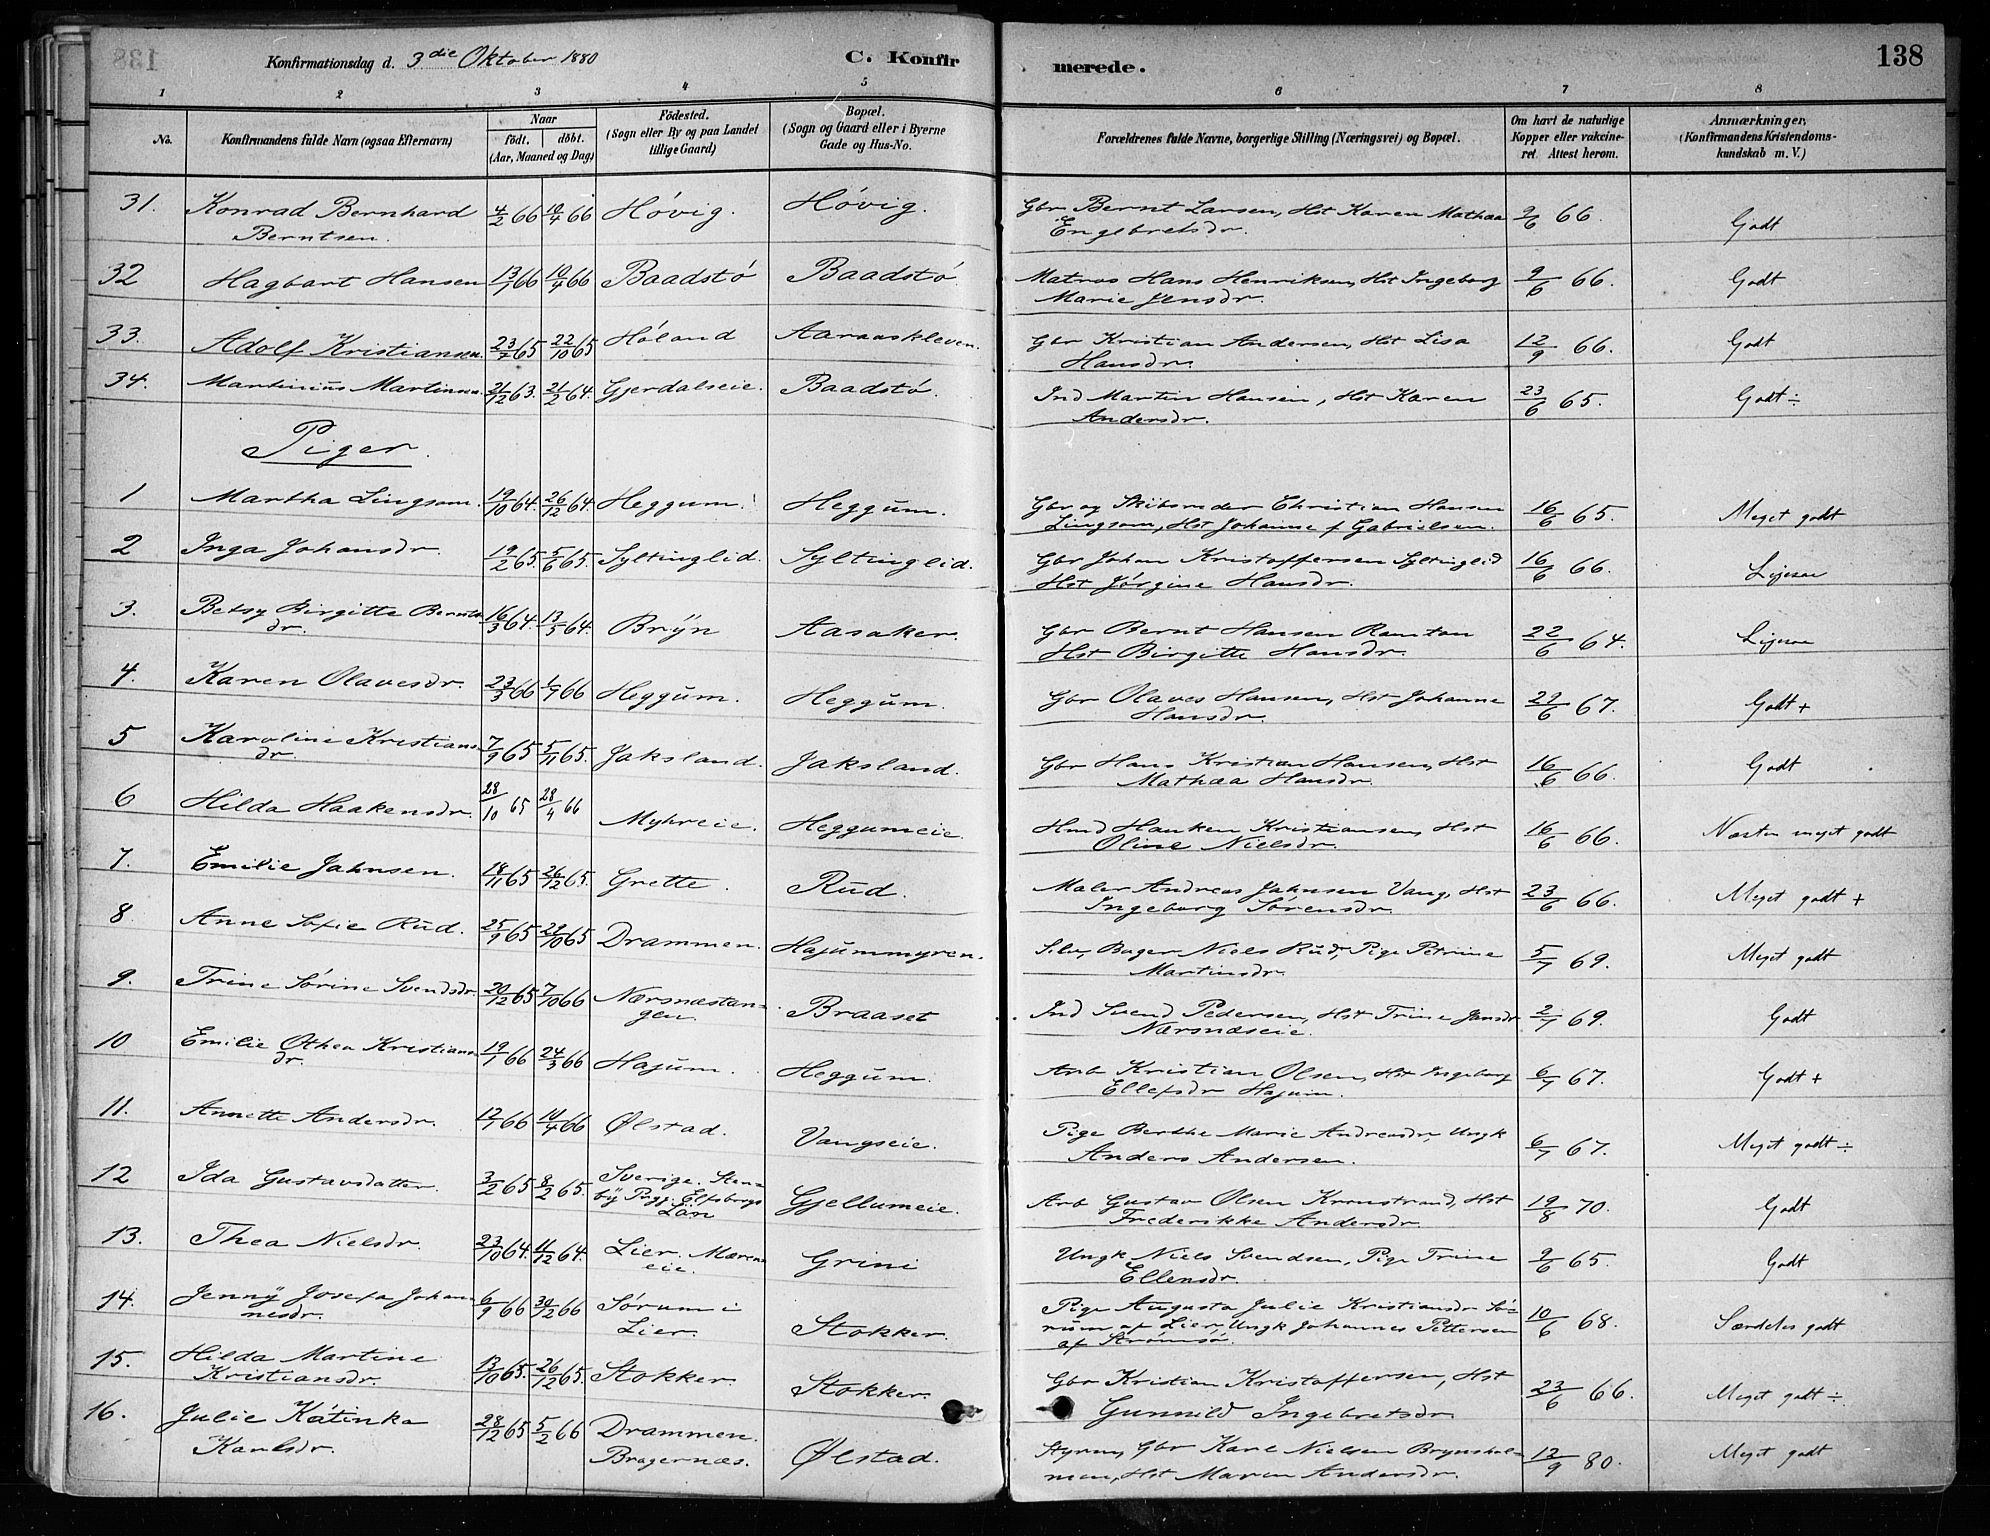 138
Konfirmationsdag d. 3die Oktober 1880 C. Konfirmerede. 138
1 2 3 4 5 6 7 8
No. Konfirmandens fulde Navn (ogsaa Efternavn) Naar født. døbt. (Aar, Maaned og Dag) Fødested. (Sogn eller By og paa Landet tillige Gaard) Bopæl. (Sogn og Gaard eller i Byerne Gade og Hus-No. Forældrenes fulde Navne, borgerlige Stilling (Næringsvei) og Bopæl. Om havt de naturlige Kopper eller vakcineret. Attest herom. Anmærkninger, (Konfirmandens Kristendomskundskab m. V.)
31. Konrad Bernhard 4/2 66 10/4 66 Høvig. Høvig. Gbr Bernt Larsen, Hst Karen Mathea 9/6 66. Godt
Berntsen. Engebretsdr.
32 Hagbart Hansen 13/1 66 10/4 66 Baadstø Baadstø Matros Hans Henriksen, Hst Ingeborg 9/6 66. Godt
Marie Jensdr.
33. Adolf Kristiansen. 23/7 65 22/10 65 Høland Aaraaskleven. Gbr Kristian Andersen, Hst Lisa 12/9 66. Godt
Hansdr.
34. Martinius Martinsen. 21/12 63. 21/2 64. Gjerdalseie. Baadstø. Ind Martin Hansen, Hst Karen 23/6 65. Godt ÷
Andersdr.
Piger.
1 Martha Lingsom. 19/10 64. 26/12 64. Heggum. Heggum. Gbr og Skibsreder Christian Hansen 16/6 65. Meget godt
Lingsom, Hst Johanne f Gabrielsen.
2 Inga Johansdr. 19/2 65. 5/6 65. Syltinglid. Syltinglid. Gbr Johan Kristoffersen Syltinglid 16/6 66.
Hst Jørgine Hansdr.
3. Betsy Birgitte Bernts 16/3 64. 13/5 64. Brÿn Aasaker. Gbr Bernt Hansen 22/6 64.
dr. Hst Birgitte Hansdr.
4. Karen Olavesdr. 23/3 66 1/7 66 Heggum. Heggum. Gbr Olaves Hansen, Hst Johanne 29/6 67. Godt +
Hansdr
5 Karoline Kristians 7/9 65 5/11 65. Jaksland. Jaksland. Gbr Hans Kristian Hansen, Hst 16/6 66. Godt
dr. Mathea Hansdr.
6 Hilda Haakensdr. 28/10 65 28/4 66 Myhreie. Heggumeie. Hmd Haaken Kristiansen, Hst 16/6 66. Næsten meget godt
Oline Nielsdr.
7. Emilie Jahnsen. 18/11 65 26/12 65. Grette. Rud. Maler Andreas Jahnsen Vang, Hst 23/6 66. Meget godt +
Ingeborg Sørensdr.
8. Anne Sofie Rud. 25/9 65 29/10 65 Drammen. Hajummyren. Bager Niels Rud, Pige Petrine 5/7 69. Meget godt
Martinsdr.
9. Trine Sørine Svendsdr. 20/12 65 7/10 66 Nærsnæstan= Braaset Ind Svend Pedersen, Hst Trine Jansdr 2/7 69. Godt
gen. Nærsnæseie.
10 Emilie Othea Kristians 19/1 66 24/3 66 Hajum. Heggum. Arb Kristian Olsen, Hst Ingeborg 6/7 67. Godt +
dr. Ellefsdr Hajum.
11. Annette Andersdr. 12/1 66 10/4 66 Ølstad. Vangseie. Pige Berthe Marie Andreasdr Ungk 6/7 67. Meget godt ÷
Anders Andersen.
12 Ida Gustavsdatter. 3/2 65 8/2 65. Sverige. Sten= Gjellumeie. Arb Gustav Olsen Kronstrand, Hst 19/8 70. Godt
by Pregj. Elfsborgs Frederikke Andersdr.
Län
13. Thea Nielsdr. 23/10 64. 11/12 64. Lier. Mæren= Grini Ungk Niels Svendsen, Pige Trine 9/6 65. Godt
eie. Ellensdr.
14. Jennÿ Josefa Johan= 6/9 66 30/12 66 Sørum i Stokker. Pige Augusta Julie Kristiansdr Sø= 10/6 68. Særdeles godt
nesdr. Lier. rum af Lier, Ungk Johannes Pettersen
af Strømsø.
15. Hilda Martine 13/10 65. 26/12 65. Stokker. Stokker. Gbr Kristian Kristoffersen, Hst 23/6 66. Meget godt ÷
Kristiansdr. Gunnild Ingebretsdr.
16. Julie Katinka 28/12 65 5/2 66 Drammen. Ølstad. Styrm, Gbr Karl Nielsen Brynshol= 12/9 80. Meget godt
Karlsdr. Bragernæs. men, Hst Maren Andersdr.